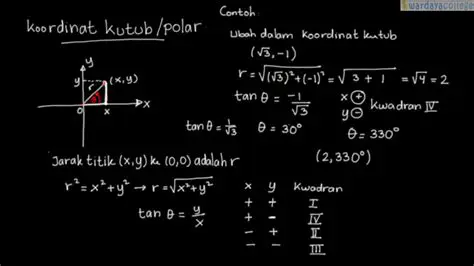 wardayacollege
koordinat kutub/polar
y
y
(x,y)
r
θ
0
x
x
Jarak titik (x,y) ke (0,0) adalah r
r² = x² + y² → r = √(x² + y²)
tan θ = y/x
Contoh:
Ubah dalam koordinat kutub
(√3, -1)
r = √((√3)² + (-1)²) = √(3 + 1) = √4 = 2
tan θ = -1/√3
x ⊕
y ⊖
kwadran IV
tan θ = 1/√3
θ = 30°
θ = 330°
(2, 330°)
x y kwadran
+ + I
+ - IV
- + II
- - III